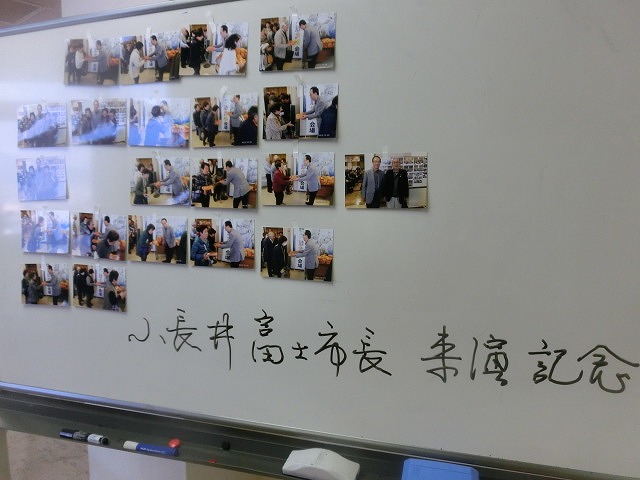 小長井富士市長 来演記念
会場